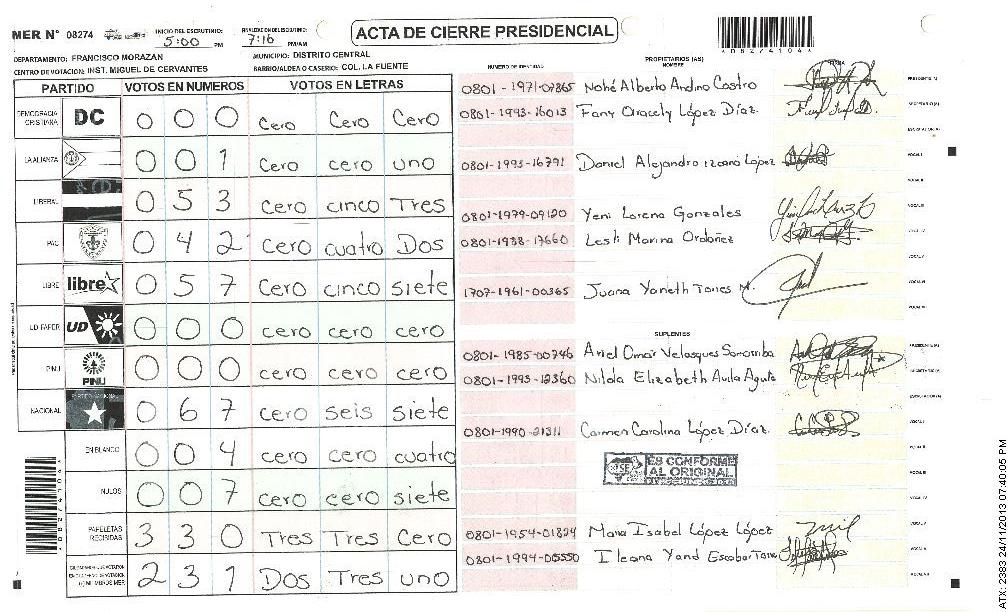 MER N° 08274
INICIO DEL ESCRUTINIO: 5:00 PM
FINALIZACION DEL ESCRUTINIO: 7:16 PM/AM
ACTA DE CIERRE PRESIDENCIAL
*08274104*
DEPARTAMENTO: FRANCISCO MORAZAN
MUNICIPIO: DISTRITO CENTRAL
CENTRO DE VOTACION: INST. MIGUEL DE CERVANTES
BARRIO/ALDEA O CASERIO: COL. LA FUENTE
PARTIDO VOTOS EN NUMEROS VOTOS EN LETRAS
DEMOCRACIA CRISTIANA DC 0 0 0 Cero Cero Cero
LA ALIANZA 0 0 1 Cero cero uno
LIBERAL 0 5 3 Cero cinco Tres
PAC 0 4 2 Cero cuatro Dos
LIBRE libre 0 5 7 Cero cinco siete
UD FAPER UD 0 0 0 cero cero cero
PINU PINU 0 0 0 cero cero cero
NACIONAL 0 6 7 cero seis siete
EN BLANCO 0 0 4 cero cero cuatro
NULOS 0 0 7 cero cero siete
PAPELETAS RECIBIDAS 3 3 0 Tres Tres Cero
2 3 1 Dos Tres uno
NUMERO DE IDENTIDAD
PROPIETARIOS (AS)
NOMBRE
FIRMA
0801-1971-07865 Nohé Alberto Andino Castro PRESIDENTE (A)
0801-1993-16013 Fany Oracely López Díaz. SECRETARIO (A)
ESCRUTADOR (A)
0801-1993-16791 Daniel Alejandro López VOCAL I
VOCAL II
0801-1979-09120 Yeni Lorena Gonzales VOCAL III
0801-1938-17660 Lesli Marina Ordoñez VOCAL IV
VOCAL V
1707-1961-00365 Juana Yaneth Torres M. VOCAL VI
SUPLENTES
0801-1985-00746 Ariel Omar Velasques PRESIDENTE (A)
0801-1993-12360 Nilda Elizabeth Avila SECRETARIO (A)
ESCRUTADOR (A)
0801-1990-21311 Carmen Carolina López Díaz. VOCAL I
VOCAL II
ES CONFORME
AL ORIGINAL
VOCAL III
VOCAL IV
0801-1954-01824 Maria Isabel López López VOCAL V
0801-1994-05550 Ileana Escobar
*08274104*
ATX: 2383 24/11/2013 07:40:05 PM